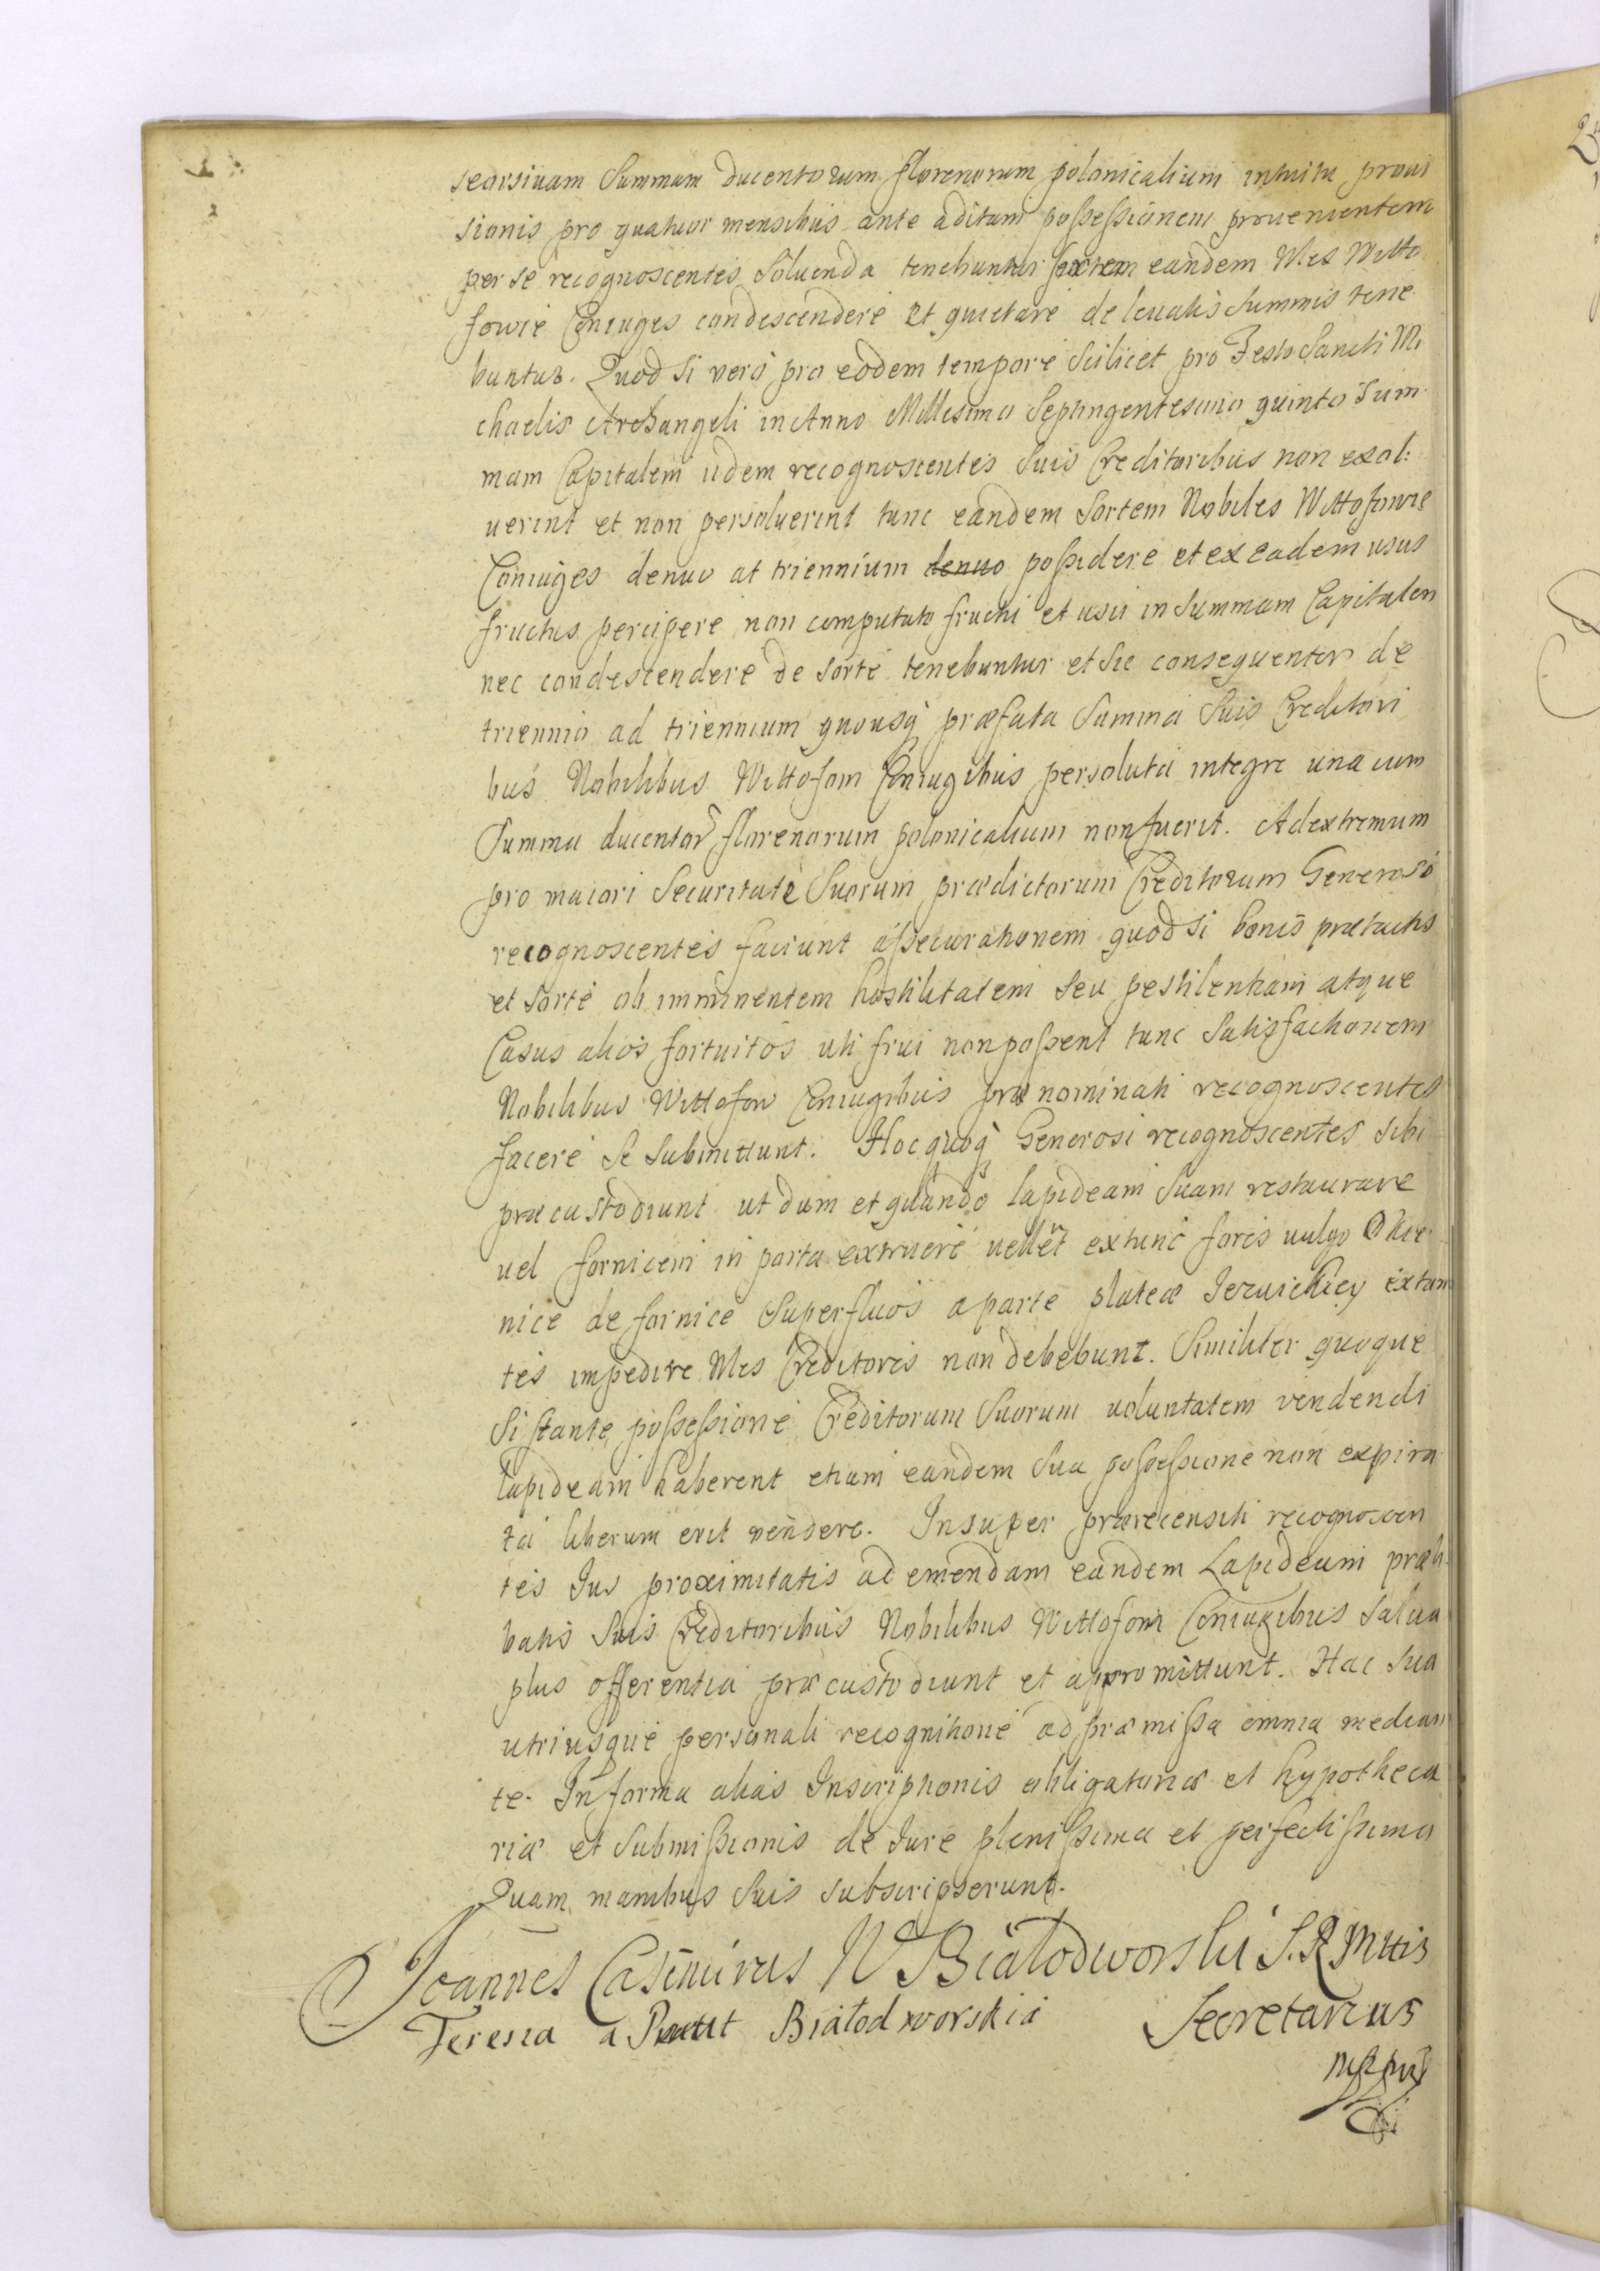 seorsivam Summam ducentorum florenorum polonicalium intuitu provi
sionis pro quatuor mensibus ante aditam possessionem provenientem
per se recognoscentes Solvenda tenebuntur sortem eandem Nles Witto
fowie Coniuges condescendere et quietare de levatis Summis tene
buntur. Quod si vero pro eodem tempore Scilicet pro Festo Sancti Mi
chaelis Archangeli in Anno Millesimo Septingentesimo quinto Sum
mam Capitalem iidem recognoscentes Suis Creditoribus non exol:
uerint et non persoluerint tunc eandem Sortem Nobiles Wittofowie
Coniuges denuo at triennium denuo possidere et ex eadem usus
fructus percipere non computato fructu et usu in Summam Capitalem
nec condescendere de sorte tenebuntur et sic consequenter de
triennio ad triennium quousq praefata Summa Suis Creditori
bus Nobilibus Wittofom Coniugibus persoluta integre una cum
Summa ducentor florenorum polonicalium non fuerit. Ad extremum
pro maiori Securitate Suorum praedictorum Creditorum Generosi
recognoscentes faciunt assecurationem quod si bonis praetactis
et sorte ob imminentem hostilitatem seu pestilentiam atque
Casus alios fortuitos uti frui non possent tunc Satisfactionem
Nobilibus Wittofow Coniugibus praenominati recognoscentes
facere se submittunt. Hoc quoq Generosi recognoscentes sibi
praecustodiunt ut dum et quando lapideam Suam restaurare
uel fornicem in porta extruere uellent extunc foris vulgo Okie
nice de fornice Superfluos a parte plateae Jezuickiey extan
tes impedire Nles Creditores non debebunt. Similiter quoque
Si stante possessione Creditorum Suorum voluntatem vendendi
lapideam haberent etiam eandem Sua possessione non expira
ta liberum erit vendere. Insuper praerecensiti recognoscen
tes Jus proximitatis ad emendam eandem Lapideam praeli
batis Suis Creditoribus Nobilibus Wittofom Coniugibus Salva
plus offerentia praecustodiunt et appromittunt. Hac Sua
utriusque personali recognitione ad praemissa omnia median
te. In forma alias Inscriptionis obligatoriae et hypotheca
riae et Submissionis de Jure plenissima et perfectissima
Quam manibus Suis subscripserunt.
Joannes Casimirus W Białodworski S. R Mttis
Teresia a Białodworskia Secretarius
mppria